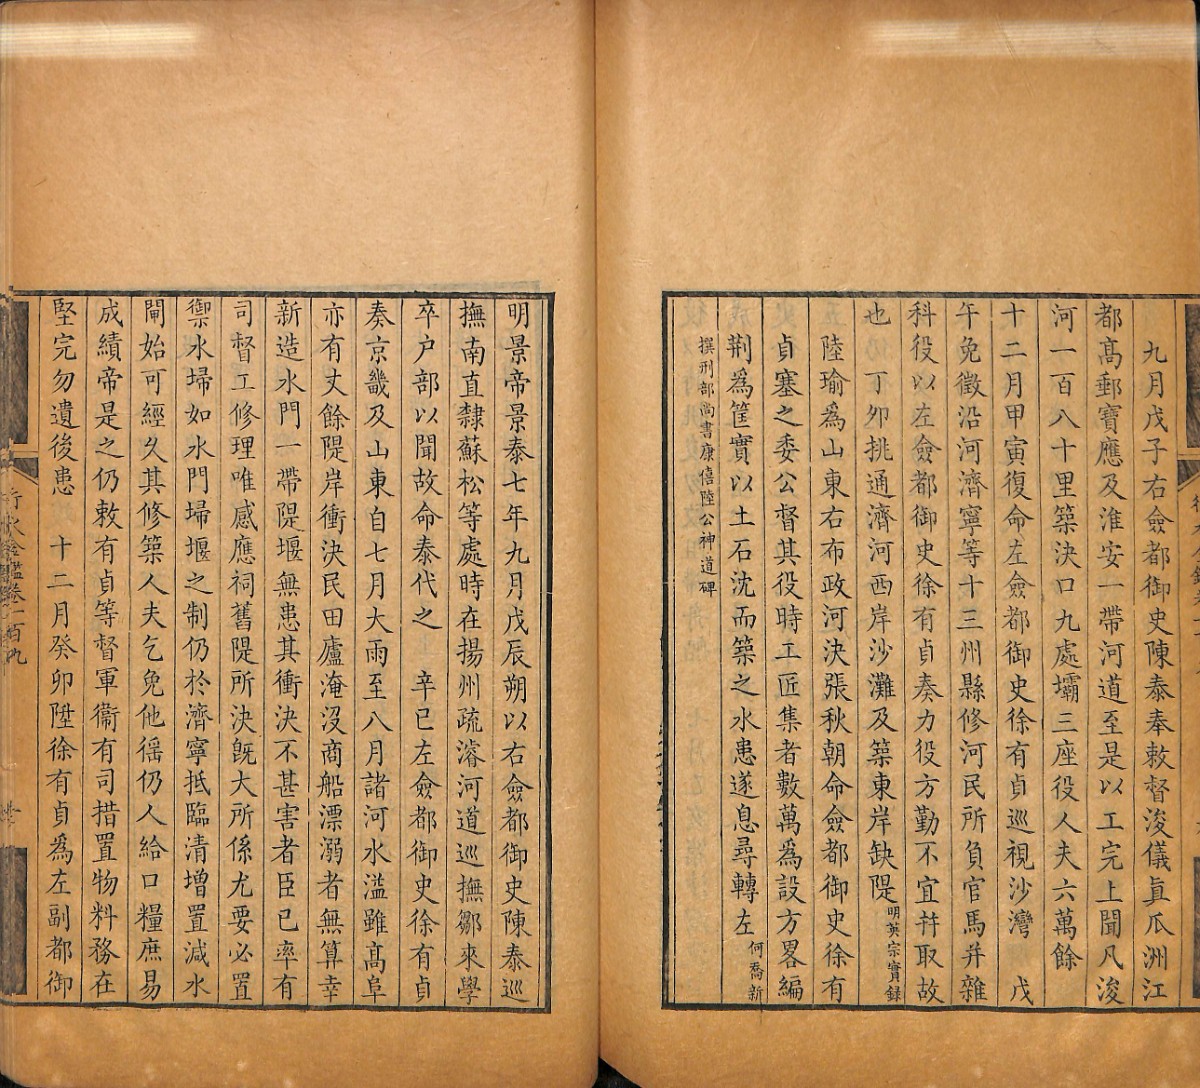 九月戊子右僉都御史陳泰奉敕督浚儀眞瓜洲江
都高郵寶應及淮安一帶河道至是以工完上聞凡浚
河一百八十里築決口九處壩三座役人夫六萬餘
十二月甲寅復命左僉都御史徐有貞巡視沙灣　戊
午免徵沿河濟寧等十三州縣修河民所負官馬并雜
科役以左僉都御史徐有貞奏力役方勤不宜幷取故
也　丁夘挑通濟河西岸沙灘及築東岸缺隄明英宗實錄
陸瑜爲山東右布政河決張秋朝命僉都御史徐有
貞塞之委公督其役時工匠集者數萬爲設方畧編
荆爲筐實以土石沈而築之水患遂息尋轉左何喬新
撰刑部尚書康僖陸公神道碑
明景帝景泰七年九月戊辰朔以右僉都御史陳泰巡
撫南直隸蘇松等處時在揚州疏濬河道巡撫鄒來學
卒户部以聞故命泰代之　辛巳左僉都御史徐有貞
奏京畿及山東自七月大雨至八月諸河水溢雖高阜
亦有丈餘隄岸衝決民田廬淹沒商船漂溺者無算幸
新造水門一帶隄堰無患其衝決不甚害者臣已率有
司督工修理唯感應祠舊隄所決旣大所係尤要必置
禦水埽如水門埽堰之制仍於濟寧抵臨清增置減水
閘始可經久其修築人夫乞免他徭仍人給口糧庶易
成績帝是之仍敕有貞等督軍衞有司措置物料務在
堅完勿遺後患　十二月癸卯陞徐有貞爲左副都御
行水金鑑卷一百九